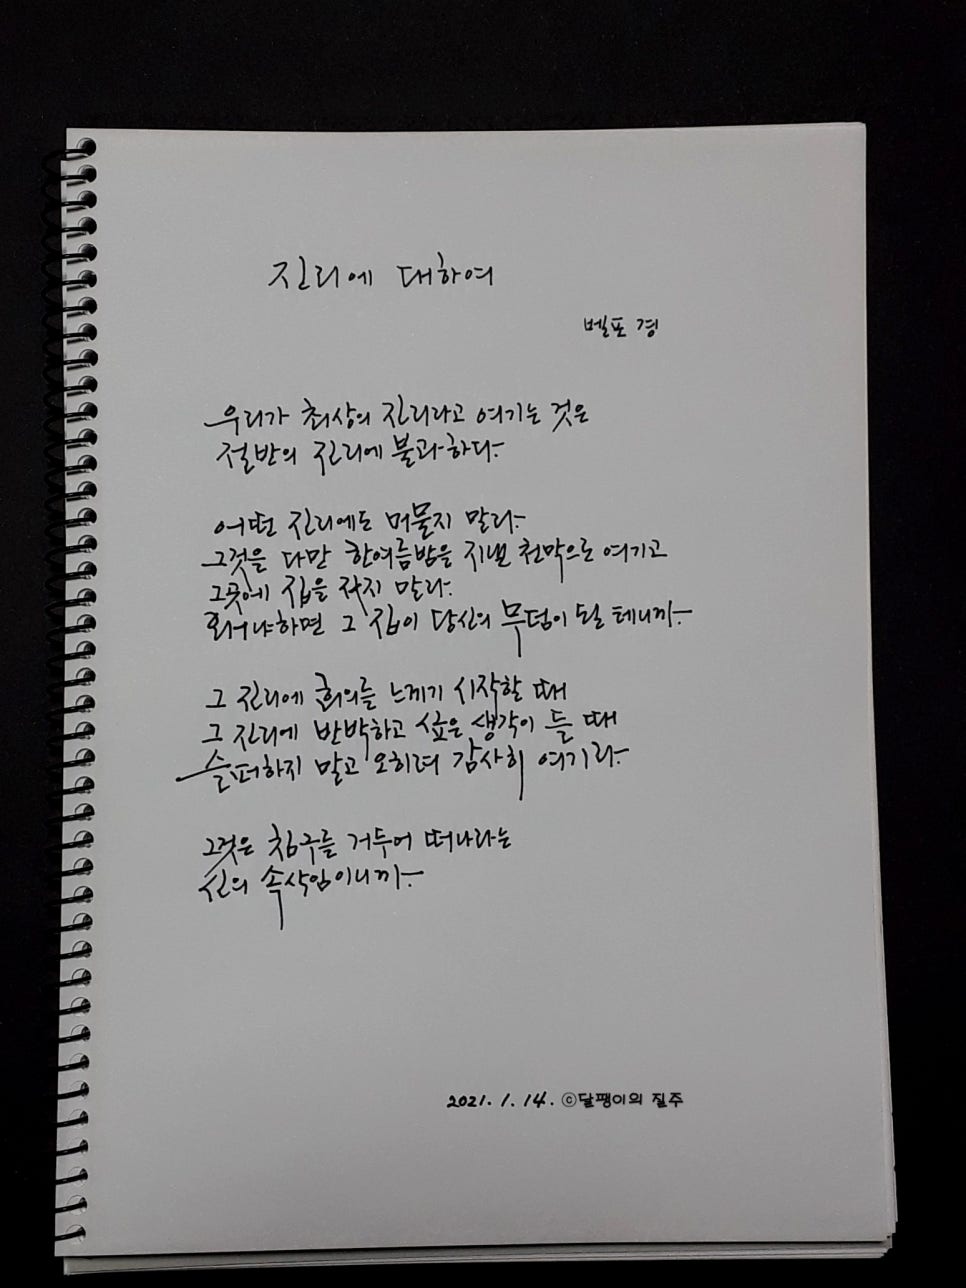 진리에 대하여
벨포 경
우리가 최상의 진리라고 여기는 것은
절반의 진리에 불과하다.
어떤 진리에도 머물지 말라.
그것을 다만 한여름밤을 지낼 천막으로 여기고
그곳에 집을 짓지 말라.
왜냐하면 그 집이 당신의 무덤이 될 테니까.
그 진리에 회의를 느끼기 시작할 때
그 진리에 반박하고 싶은 생각이 들 때
슬퍼하지 말고 오히려 감사히 여기라.
그것은 침구를 거두어 떠나라는
신의 속삭임이니까.
2021. 1. 14. ⓒ달팽이의 질주